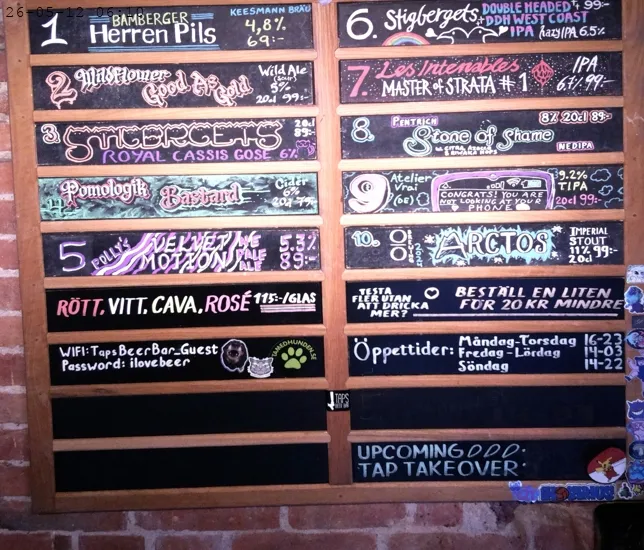 26-05-12 06:10
1 BAMBERGER Herren Pils
KEESMANN BRÄU
4,8%
69:-
2 Wildflower Good As Gold
Wild Ale
(Sour)
5%
20cl 99:-
3. STIGBERGETS
ROYAL CASSIS GOSE 6%
20cl
89:-
Pomologik Bastard
Cider
6%
20cl 79:-
5 POLLY'S VELVET MOTION
PALE ALE
5.3%
89:-
RÖTT, VITT, CAVA, ROSÉ 115:-/GLAS
WIFI: TapsBeerBar_Guest
Password: ilovebeer
6. Stigbergets
DOUBLE HEADED 99:-
DDH WEST COAST
IPA /hazy IPA 6.5%
7 Les Intenables
MASTER of STRATA #1
IPA
6,7% 99:-
8. PENTRICH
8% 20cl 89:-
Stone of Shame
NEDIPA
9 Atelier Vrai
(GE)
CONGRATS! YOU ARE
NOT LOOKING AT YOUR
PHONE
9.2%
TIPA
20cl 99:-
10. ARCTOS
IMPERIAL
STOUT
11% 99:-
20cl
TESTA
FLER UTAN
ATT DRICKA
MER?
BESTÄLL EN LITEN
FÖR 20 KR MINDRE
Öppettider:
Måndag-Torsdag 16-23
Fredag-Lördag 14-03
Söndag 14-22
TAPS
UPCOMING
TAP TAKEOVER: